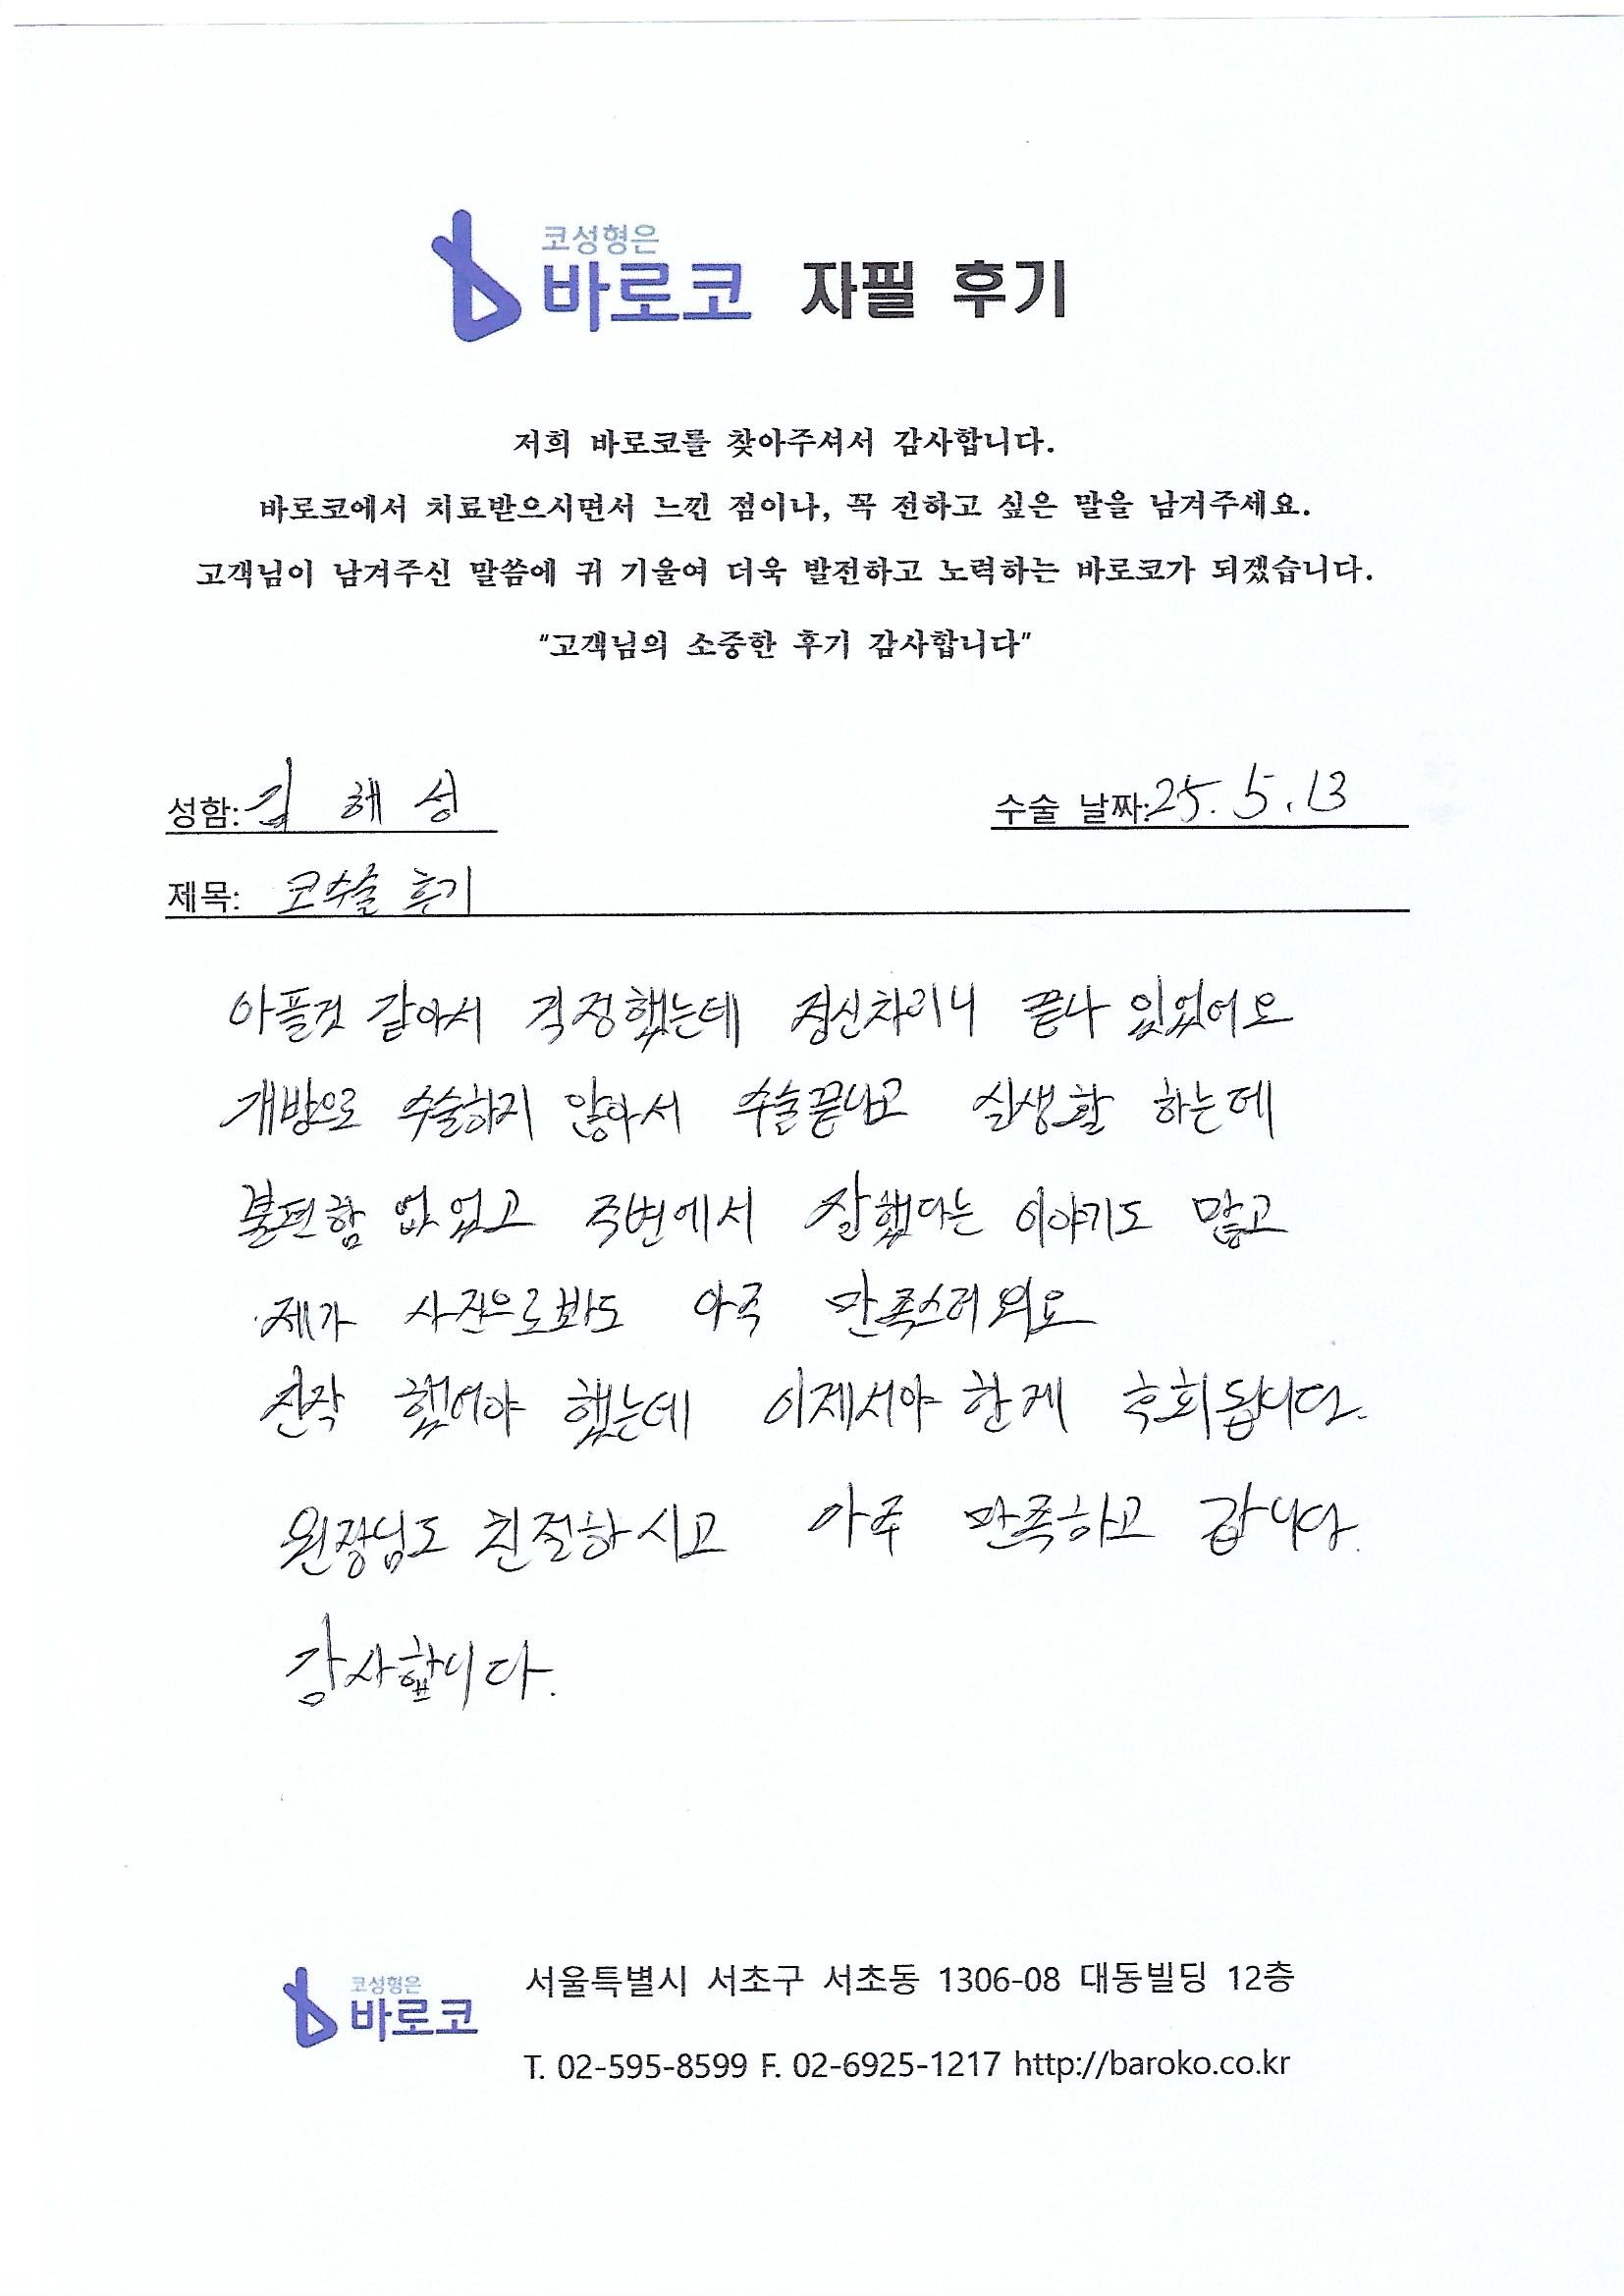 코성형은
바로코 자필 후기
저희 바로코를 찾아주셔서 감사합니다.
바로코에서 치료받으시면서 느낀 점이나, 꼭 전하고 싶은 말을 남겨주세요.
고객님이 남겨주신 말씀에 귀 기울여 더욱 발전하고 노력하는 바로코가 되겠습니다.
"고객님의 소중한 후기 감사합니다"
성함: 김 해 성 수술 날짜: 25. 5. 13
제목: 코수술 후기
아플것 같아서 걱정했는데 정신차리니 끝나 있었어요
개방으로 수술하지 않아서 수술끝나고 실생활 하는데
불편함 없었고 주변에서 잘했다는 이야기도 많고
제가 사진으로봐도 아주 만족스러워요
진작 했어야 했는데 이제서야 한게 후회됩니다.
원장님도 친절하시고 아주 만족하고 갑니다.
감사합니다.
코성형은
바로코
서울특별시 서초구 서초동 1306-08 대동빌딩 12층
T. 02-595-8599 F. 02-6925-1217 http://baroko.co.kr